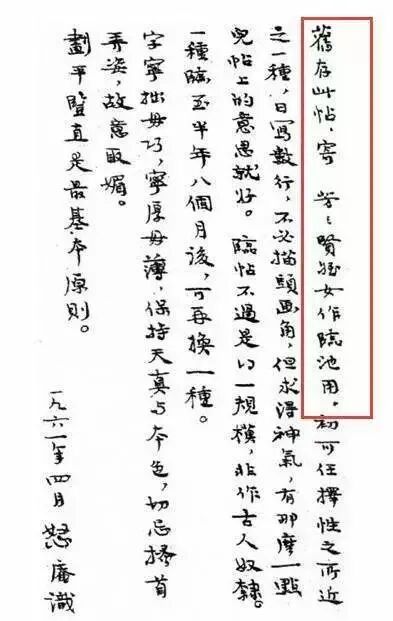 舊存此帖，寄 芳〻賢姪女作臨池用。初可任擇性之所近
之一種，日寫數行，不必描頭画角，但求得神氣，有那麼一點
兒帖上的意思就好。臨帖不過是以一規模，非作古人奴隸。
一種臨至半年八個月後，可再換一種。
字寧拙毋巧，寧厚毋薄，保持天真与本色，切忌搔首
弄姿，故意取媚。
劃平豎直是最基本原則。
一九六一年四月 怒庵識